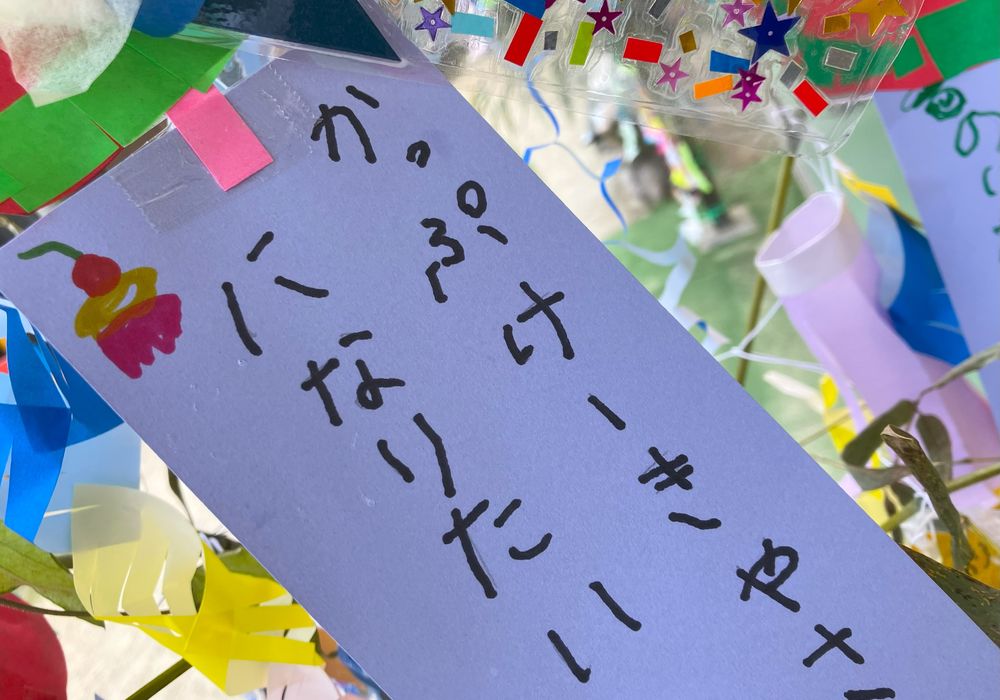 かっぷけーきやさ
になりたい